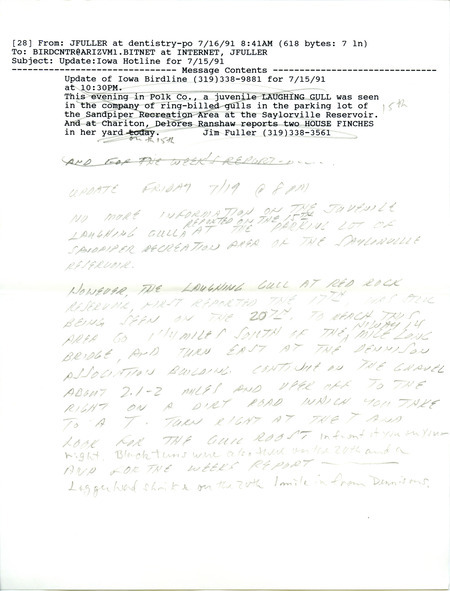 [28] From: JFULLER at dentistry-po 7/16/91 8:41AM (618 bytes: 7 ln)
To: BIRDCNTR@ARIZVM1.BITNET at INTERNET, JFULLER
Subject: Update:Iowa Hotline for 7/15/91
------------------------------- Message Contents -------------------------------
Update of Iowa Birdline (319)338-9881 for 7/15/91
at 10:30PM.
This evening in Polk Co., a juvenile LAUGHING GULL was seen
in the company of ring-billed gulls in the parking lot of 15th
the Sandpiper Recreation Area at the Saylorville Reservoir.
And at Chariton, Delores Ranshaw reports two HOUSE FINCHES
in her yard today. Jim Fuller (319)338-3561
on the 15th
AND FOR THE WEEK'S REPORT
UPDATE FRIDAY 7/19 @ 8 PM
NO MORE INFORMATION ON THE JUVENILE
REPORTED ON THE 15TH
LAUGHING GULL AT THE PARKING LOT OF
SANDPIPER RECREATION AREA OF THE SAYLORVILLE
RESERVOIR.
HOWEVER, THE LAUGHING GULL AT RED ROCK
RESERVOIR FIRST REPORTED THE 17TH WAS
BEING SEEN ON THE 20TH. TO REACH THIS
AREA GO 1 1/4 MILES SOUTH OF THE MILE LONG
BRIDGE, AND TURN EAST AT THE DENNISON
ASSOCIATION BUILDING. CONTINUE ON THE GRAVEL
ABOUT 2.1-2 MILES AND VEER OFF TO THE
RIGHT ON A DIRT ROAD WHICH YOU TAKE
TO A T. TURN RIGHT AT THE T AND
LOOK FOR THE GULL ROOST in front of you on your
right. Black terns were also 20th and a
AND FOR THE WEEKS REPORT
Loggerhead shrike on the 20th 1 mile in from Dennisons.